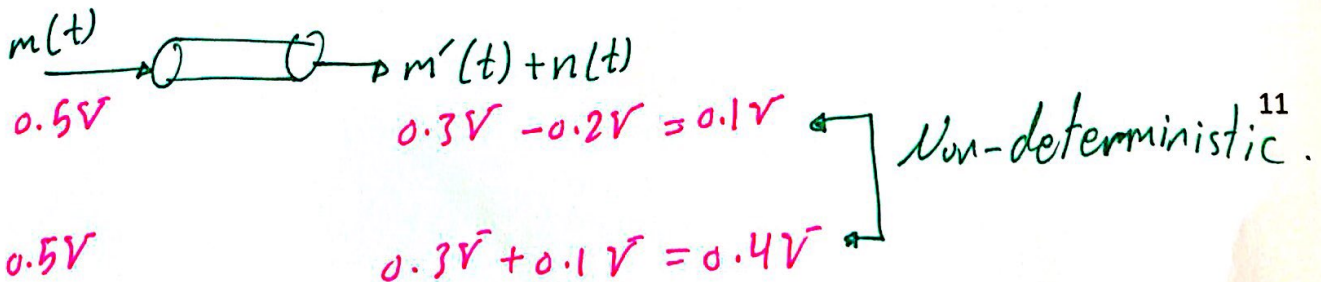 m(t)
m′(t) + n(t)
0.5V
0.3V - 0.2V = 0.1V
11
Non-deterministic.
0.5V
0.3V + 0.1V = 0.4V